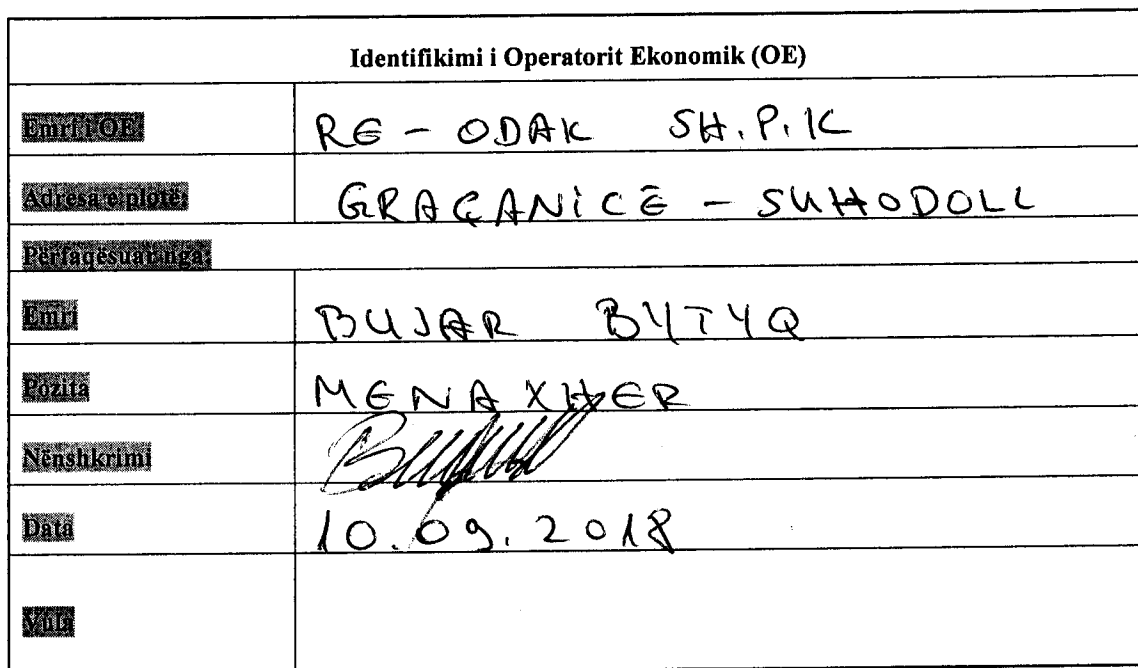 Identifikimi i Operatorit Ekonomik (OE)
Emri i OE: RE - ODAK SH.P.K
Adresa e plotë: GRAÇANICË - SUHODOLL
Përfaqësuar nga:
Emri BUJAR BYTYQ
Pozita MENAXHER
Nënshkrimi
Data 10.09.2018
Vula